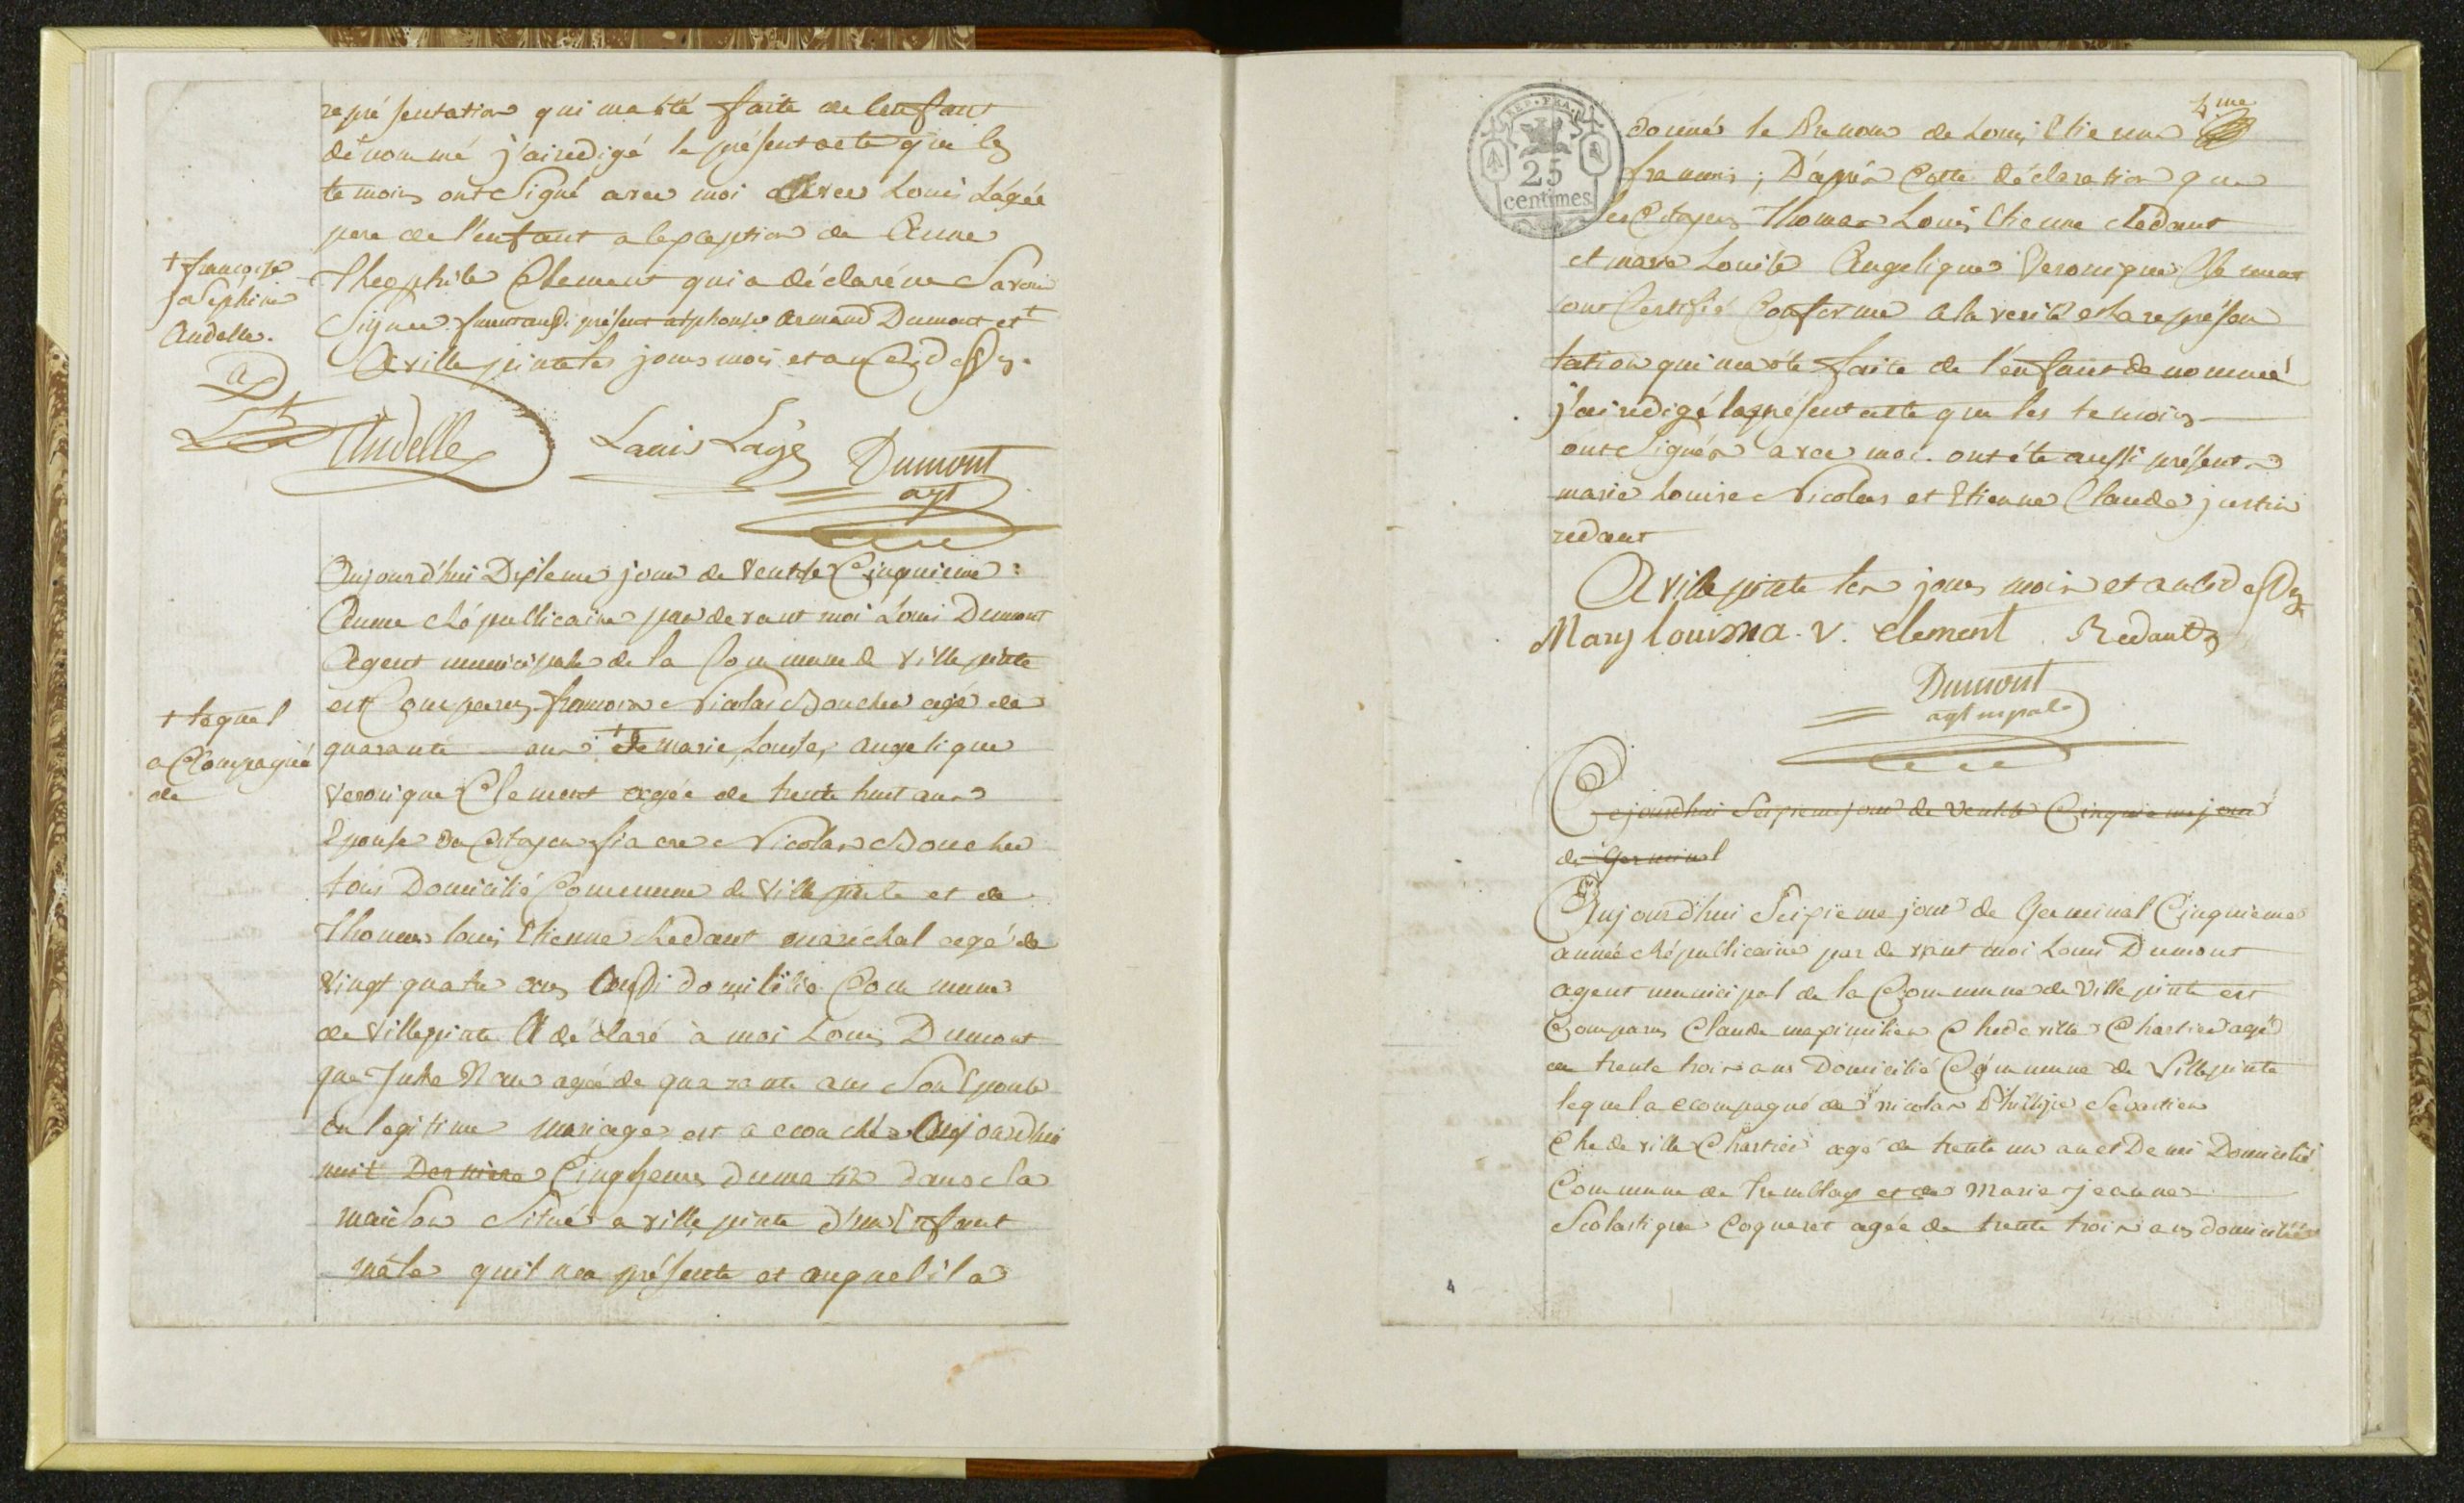 représentation qui ma été faite de lenfant
dénommé j'ai redigé le présent acte que les
temoins ont Signé avec moi avec Louis Lagée
pere de l'enfant a lexception de Anne
Theophile Clement qui a déclaré ne Savoir
Signer. furent aussi présent alphonse Armand Dumont et +
A villepinte les jours mois et an Cidessus.
+ françoise
joséphine
Andelle.
Andelle Louis Lagé Dumont
agt
Aujourd'hui Dixieme jour de Ventose Cinquieme
Année Républicaine par devant moi Louis Dumont
Agent municipale de la Commune de Villepinte
est Comparus françois Nicolas Boucher agé de
quarante ans + de marie Louise, angelique
Veronique Clement agée de trente huit ans
+ lequel
aCCompagné
de
Epouse du Citoyen fiacre Nicolas Boucher
tous Domicilié Commune de Villepinte et de
Thomas louis Etienne Redant maréchal agé de
vingt quatre ans Aussi domicilié Commune
de Villepinte A déclaré à moi Louis Dumont
que Julie agée de quarante ans Son Epouse
en legitime mariage est accouchée Aujourdhui
nuit Derniere Cinq heures du matin dans la
maison Située a villepinte d'un Enfant
mâle quil ma présenté et auquel il a
4.me
REP. FRA.
25
centimes
donné le Prenom de Louis Etienne
francois; D'après Cette déclaration que
les Citoyens Thomas Louis Etienne Redant
et marie Louise Angelique Veronique Clement
ont Certifié Conforme a la verité et la représen
tation qui ma été faite de l'enfant denommé
j'ai redigé le présent acte que les temoins
ont Signés avec moi. ont été aussi présents
marie Louise Nicolas et Etienne Claude justin
redant
A villepinte les jours mois et an Cidessus
Mary louisna. v. clement Redant
Dumont
agt mpale
Cejourdhui Seixieme jour de Ventose Cinquieme jour
de Germinal
Aujourd'hui Seixieme jour de Germinal Cinquieme
année Républicaine par devant moi Louis Dumont
agent municipal de la Commune de Villepinte est
Comparus Claude maximilien Chedeville Chartier agé
de trente trois ans Domicilié Commune de Villepinte
lequel accompagné de nicolas Phillipe Sebastien
Chedeville Chartier agé de trente un an et Demi Domicilié
Commune de Tremblay et de Marie jeanne
Scolastique Coqueret agée de trente trois ans domiciliée
4